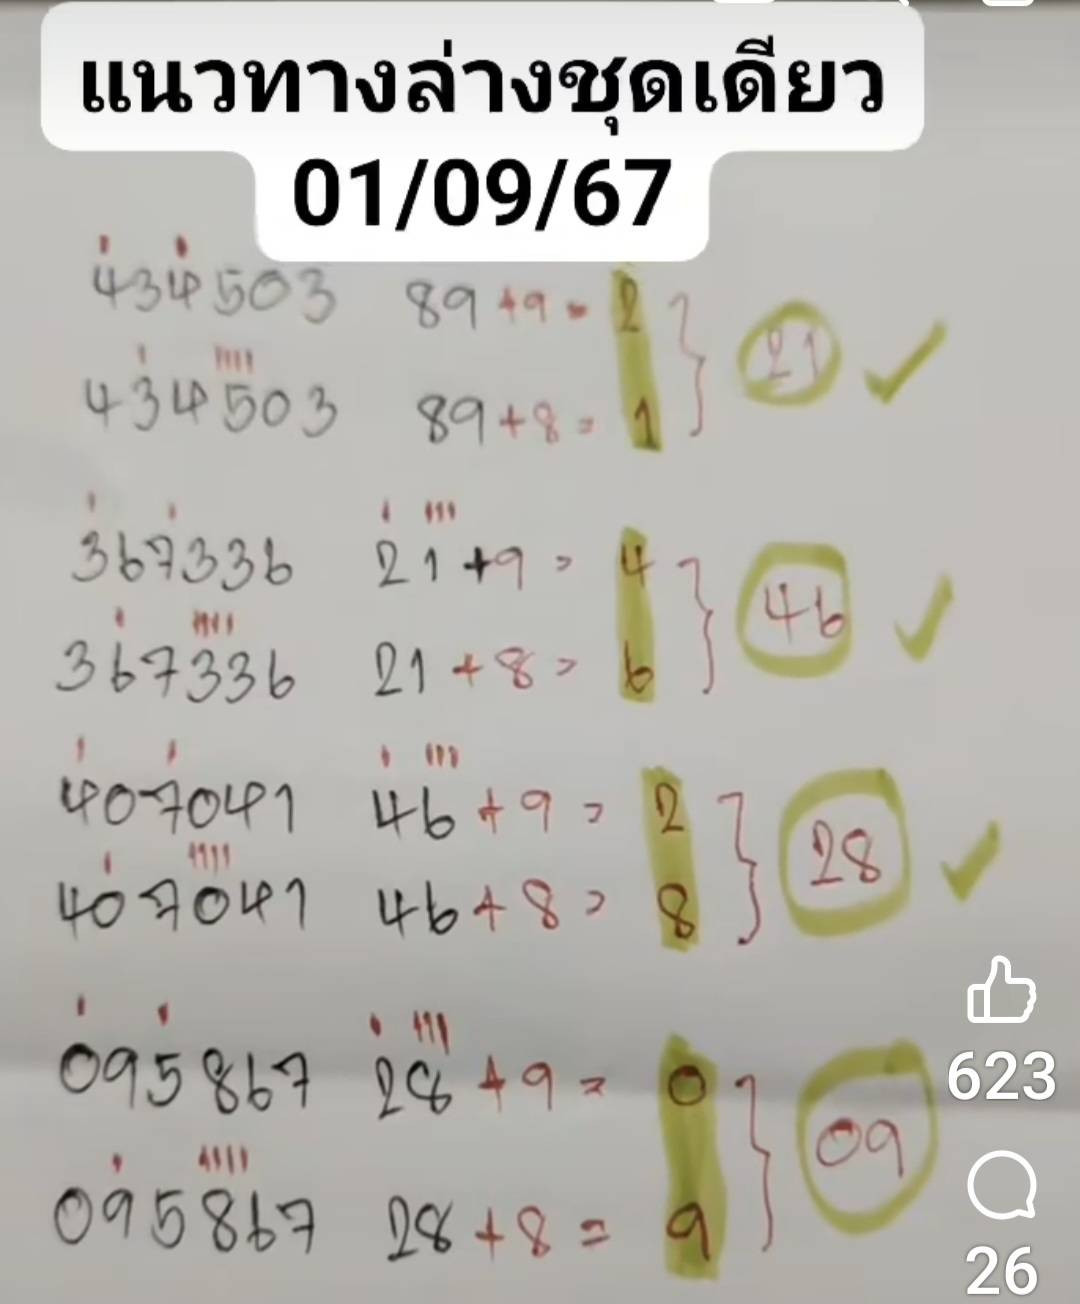 แนวทางล่างชุดเดียว
01/09/67
434503 89+9=2
21
434503 89+8=1
367336 21+9=4
46
367336 21+8=6
407041 46+9=2
28
407041 46+8=8
095867 28+9=0
09
095867 28+8=9
623
26